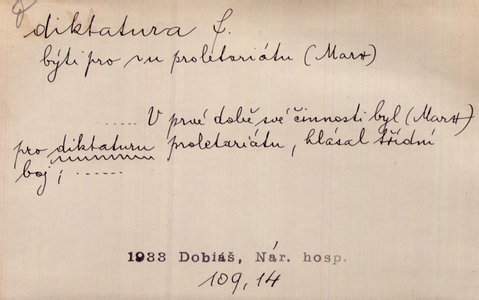 diktatura f.
býti pro ~u proletariátu (Marx)
...... V prvé době své činnosti byl (Marx)
pro diktaturu proletariátu, hlásal třídní
boj; ......
1933 Dobiáš, Nár. hosp.
109,14